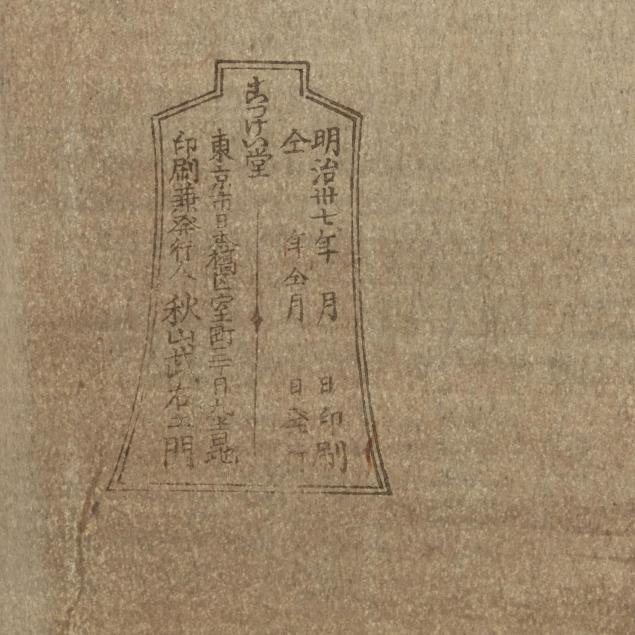 明治卅七年　月　日印刷
仝　年仝月　日発行
こっけい堂
東京市日本橋区室町三丁目九番地
印刷兼発行人　秋山武右エ門